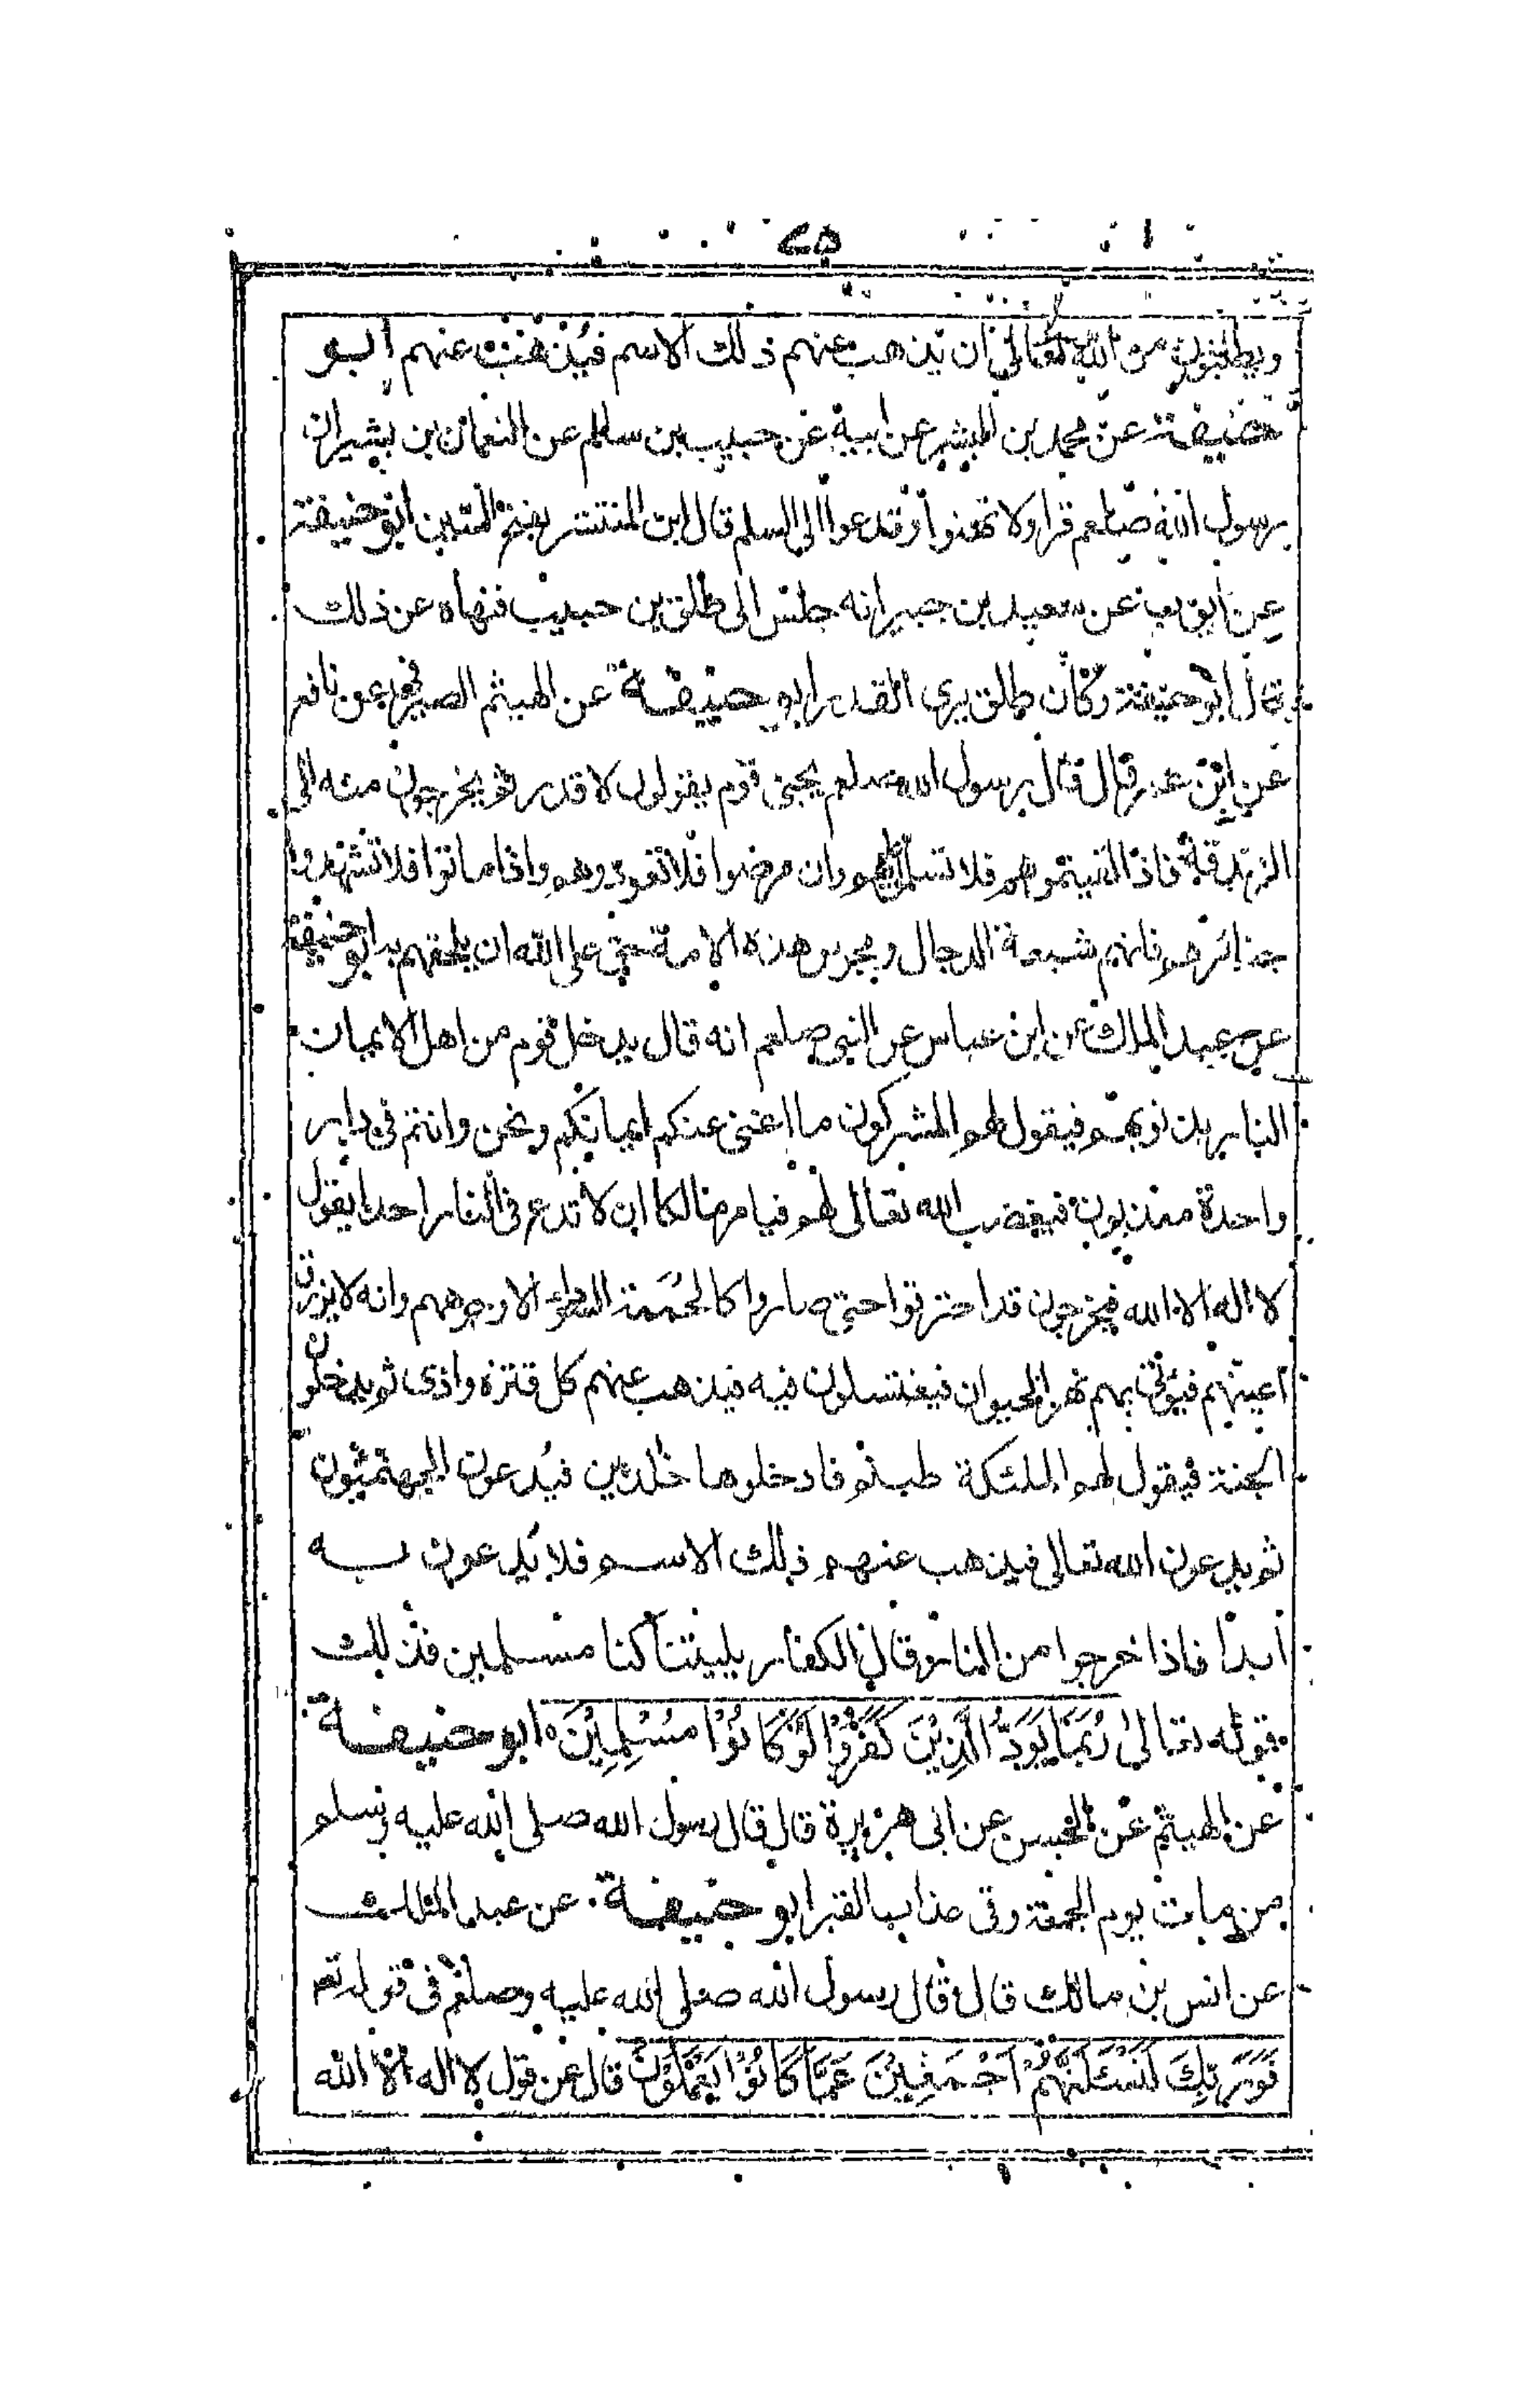 ٢٥
ويطلبون من الله تعالى ان يذهب عنهم ذلك الاسم فيذهب عنهم ابو
حنيفة عن محمد بن المنتشر عن ابيه عن حبيب بن سالم عن النعمان بن بشير ان
رسول الله صلعم قرا ولا تهنوا وتدعوا الى السلم قال ابن المنتشر بفتح السين ابو حنيفة
عن ايوب عن سعيد بن جبير انه جلس الى طلق بن حبيب فنهاه عن ذلك
قال ابو حنيفة وكان طلق يرى القدر ابو حنيفة عن الهيثم الصيرفى عن نافع
عن ابن عمر قال قال رسول الله صلعم يجئ قوم يقولون لا قدر ثم يخرجون منه الى
الزندقة فاذا لقيتموهم فلا تسلموا عليهم وان مرضوا فلا تعودوهم واذا ماتوا فلا تشهدوا
جنائزهم فانهم شيعة الدجال ومجوس هذه الامة حق على الله ان يلحقهم به ابو حنيفة
عن عبد الملك عن ابن عباس عن النبى صلعم انه قال يدخل قوم من اهل الايمان
النار بذنوبهم فيقول لهم المشركون ما اغنى عنكم ايمانكم ونحن وانتم فى دار
واحدة معذبون فيغضب الله تعالى لهم فيامر مالكا ان لا تدع فى النار احدا يقول
لا اله الا الله فيخرجون قد احترقوا حتى صاروا كالحممة السوداء الا وجوههم وانه لا يزرق
اعينهم فيؤتى بهم نهر الحيوان فيغتسلون فيه فيذهب عنهم كل قترة واذى ثم يدخلون
الجنة فيقول لهم الملئكة طبتم فادخلوها خلدين فيدعون الجهنميون
ثم يدعون الله تعالى فيذهب عنهم ذلك الاسم فلا يدعون به
ابدا فاذا خرجوا من النار قال الكفار يليتنا كنا مسلمين فذلك
قوله تعالى رُبَمَا يَوَدُّ الَّذِيْنَ كَفَرُوْا لَوْ كَانُوْا مُسْلِمِيْنَ ابو حنيفة
عن الهيثم عن الحسن عن ابى هريرة قال قال رسول الله صلى الله عليه وسلم
من مات يوم الجمعة وقى عذاب القبر ابو حنيفة عن عبد الملك
عن انس بن مالك قال قال رسول الله صلى الله عليه وسلم فى قوله تعم
فَوَرَبِّكَ لَنَسْئَلَنَّهُمْ اَجْمَعِيْنَ عَمَّا كَانُوْا يَعْمَلُوْنَ قال عن قول لا اله الا الله